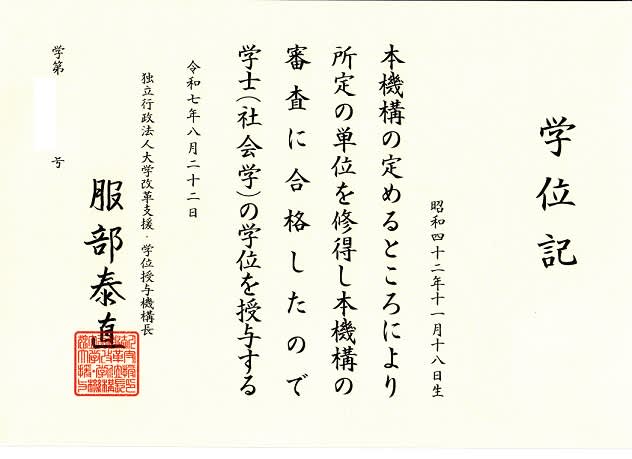 学位記
昭和四十二年十一月十八日生
本機構の定めるところにより
所定の単位を修得し本機構の
審査に合格したので
学士（社会学）の学位を授与する
令和七年八月二十二日
独立行政法人大学改革支援・学位授与機構長
服部泰直
学第 号